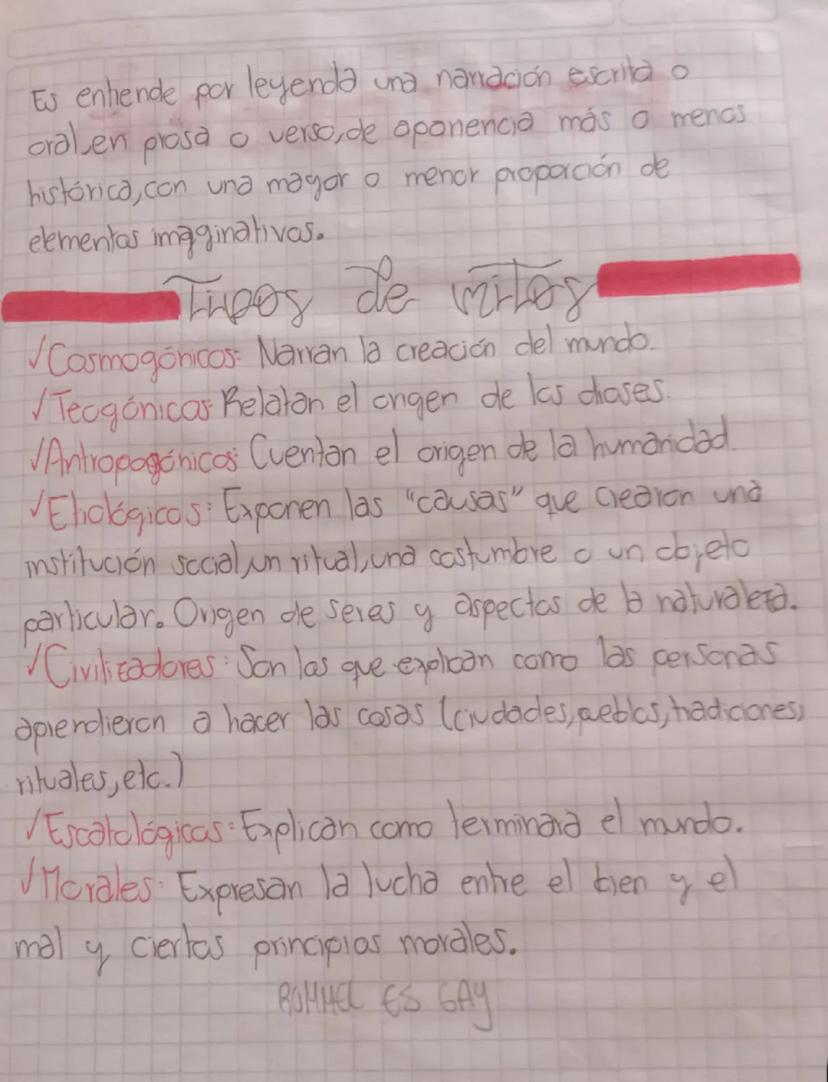 Es entiende por leyenda una narración escrita o
oral,en prosa o verso,de apariencia más o menos
histórica,con una mayor o menor proporción de
elementos imaginativos.
Tipos de mitos
√Cosmogónicos: Narran la creación del mundo.
√Teogónicos Relatan el origen de los dioses.
√Antropogónicos: Cuentan el origen de la humanidad.
√Etiológicos: Exponen las "causas" que crearon una
institución social,un ritual,una costumbre o un objeto
particular. Origen de seres y aspectos de la naturaleza.
√Civilizadores: Son los que explican como las personas
aprendieron a hacer las cosas (ciudades,pueblos,tradiciones,
rituales,etc.)
√Escatológicos: Explican como terminara el mundo.
√Morales: Expresan la lucha entre el bien y el
mal y ciertos principios morales.
ROMMEL ES GAY